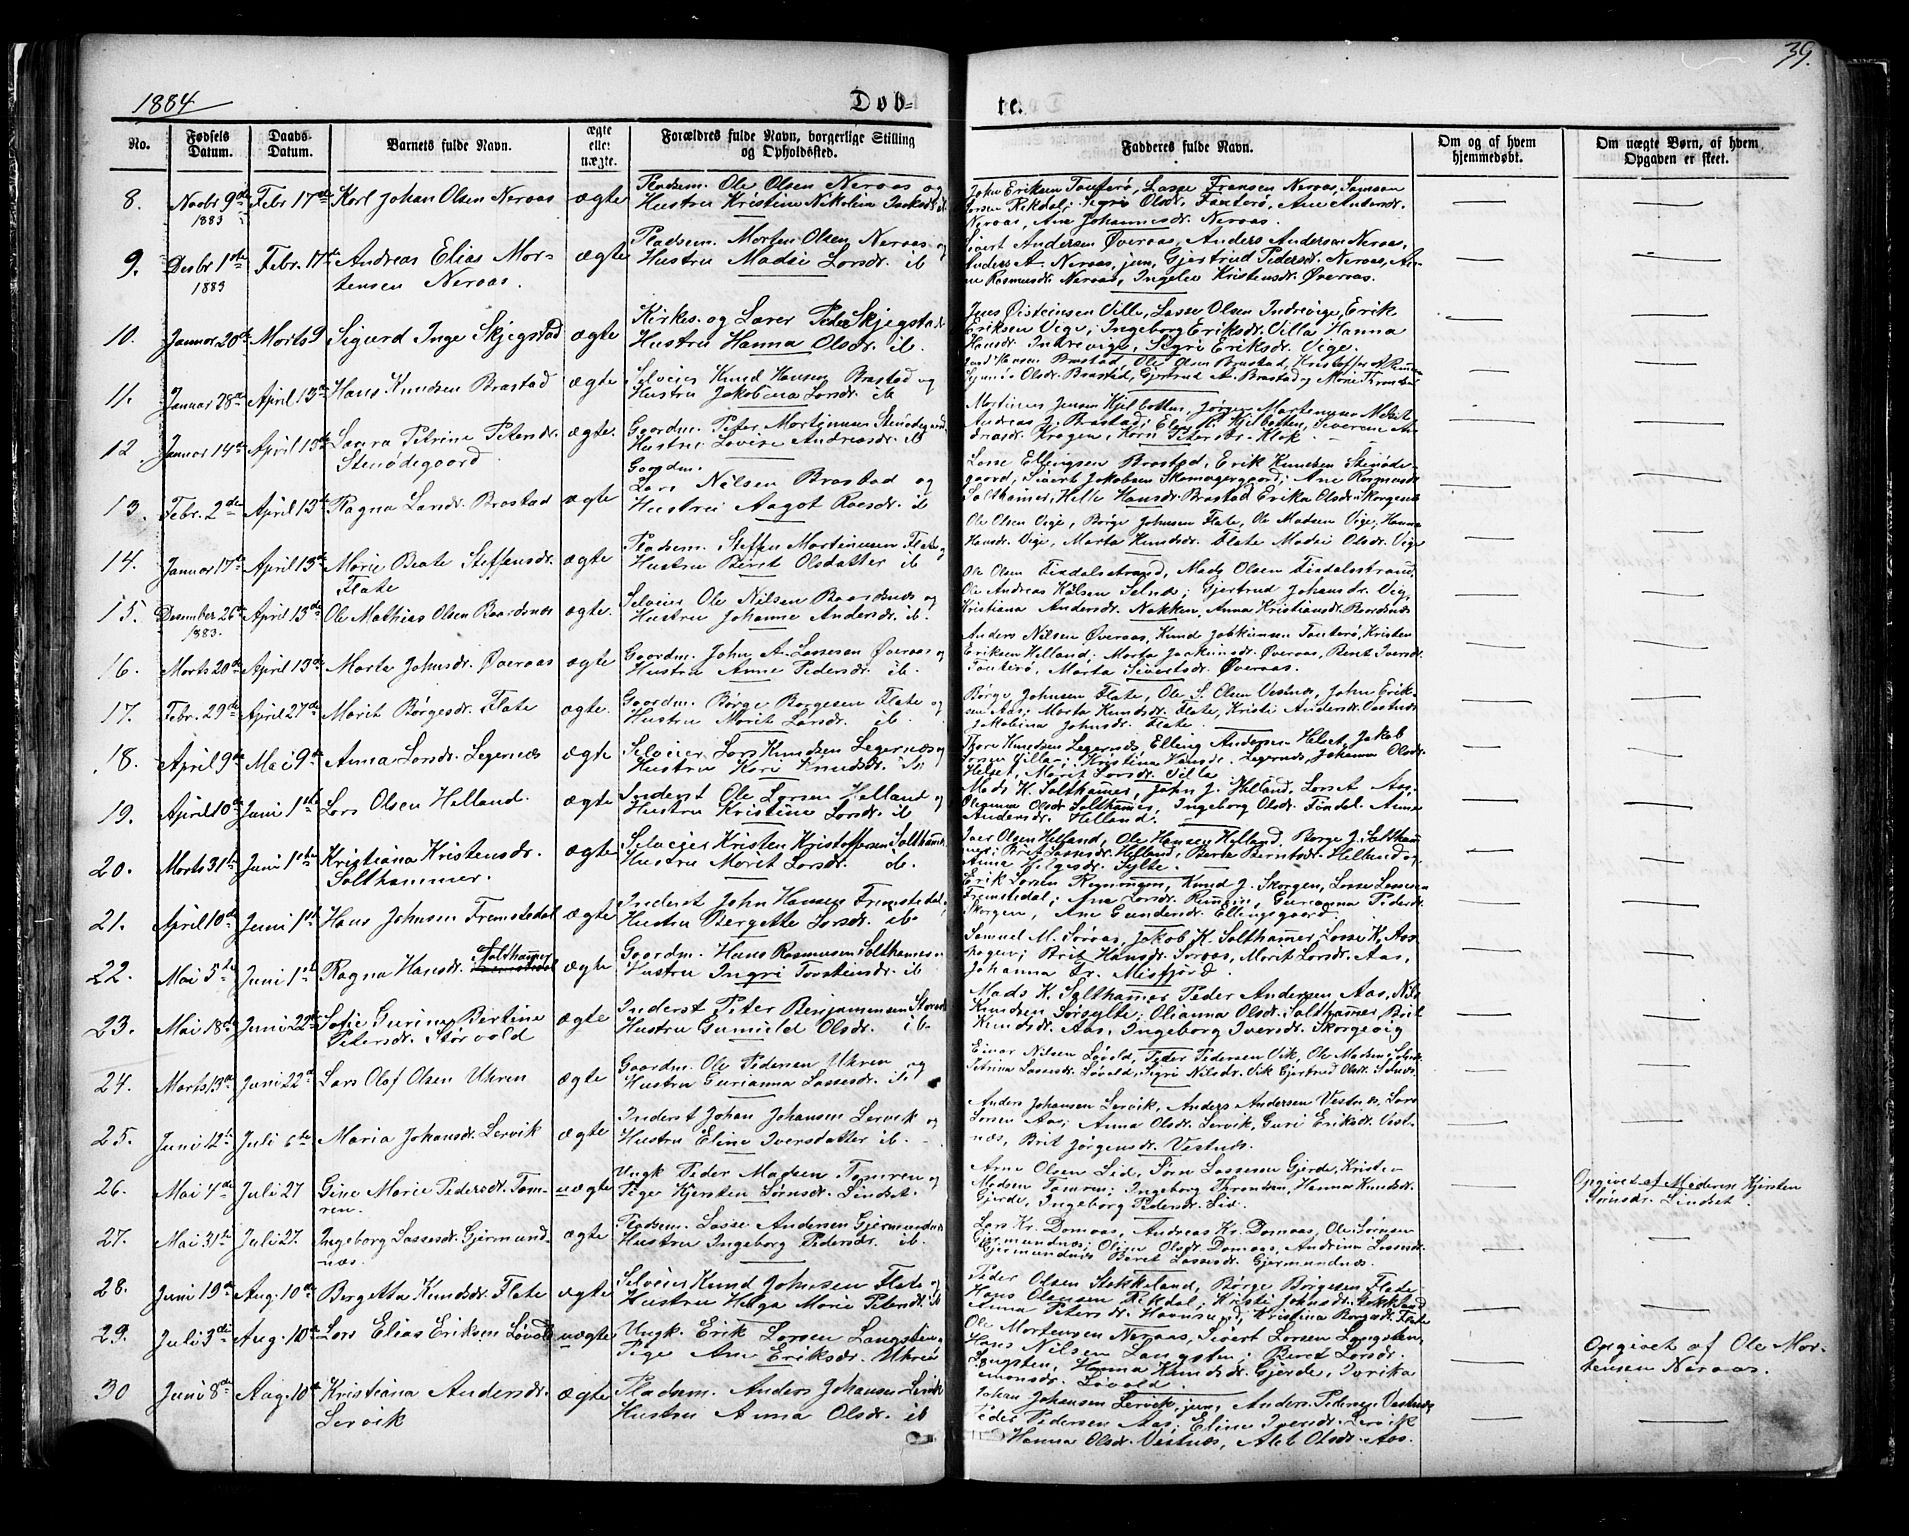 39.
1884
Døb-
te.
No.
Fødsels Datum.
Daabs- Datum.
Barnets fulde Navn.
ægte eller uægte.
Forældres fulde Navn, borgerlige Stilling og Opholdssted.
Fadderes fulde Navn.
Om og af hvem hjemmedøbt.
Om uægte Børn, af hvem Opgaven er skeet.
8. Novbr 9de 1883 Febr 17de Karl Johan Olsen Neraas ægte Pladsm. Ole Olsen Neraas og
Hustru Kristine Nikolina ib
John Eriksen Tauterø, Lasse Fransen Neraas, Samson
Rekdal; Sigri Olsdr. Tauterø, Ane Andersdr.
Neraas, Ane Johannesdr. Neraas.
9. Desbr 1ste 1883 Febr. 17de Andreas Elias Mor-
tensen Neraas. ægte Pladsm. Morten Olsen Neraas og
Hustru Madsi Larsdr. ib
Sivert Andersen Øveraas, Anders Andersen Neraas,
Anders A. Neraas, jun, Gjertrud Pedersdr. Neraas, An-
ne Rasmusdr. Neraas, Ingelev Kristensdr. Øveraas.
10. Januar 20de Marts 9 Sigurd Inge Skjegstad ægte Kirkes. og Lærer Peder Skjegstad
Hustru Hanna Olsdr. ib.
Jens Øisteinsen Villa, Lasse Olsen Indrevige, Erik
Eriksen Vige; Ingeborg Eriksdr. Villa Hanna
Hansdr. Indrevige, Sigri Eriksdr. Vige.
11. Januar 28de April 13de Hans Knudsen Brastad ægte Selveier Knud Hansen Brastad og
Hustru Jakobina Larsdr. ib
Hansen Brastad, Ole Olsen Brastad, Kristoffer
Olsdr. Brastad, Gjertrud A. Brastad og Marie
12 Januar 14de April 13de Laura Petrine Petersdr.
Stenødegaard ægte. Gaardm. Peter Martinusen Stenødegaard
Hustru Lovise Andreasdr. ib
Martinus Jensen Kjelbotten, Jørgen Martinusen
Andreas J. Brastad; Kjelbotten, Severine An-
dreasdr. Kragen, Karn Petersdr. Klok.
13. Febr. 2den April 13de Ragna Larsdr. Brastad ægte Gaardm.
Lars Nilsen Brastad og
Hustru Aagot Roesdr. ib
Lasse Ellingsen Brastad, Erik Knudsen Stenøde-
gaard, Sivert Jakobsen Skomagergaard; Ane Rasmusdr.
Salthamer, Helle Hansdr. Brastad Erika Olsdr. Skorgenes
14. Januar 17de April 13de Marie Beate Steffensdr.
Flate ægte Pladsm. Steffen Martinusen Flate og
Hustru Berit Olsdatter ib
Ole Olsen Vige, Børge Johnsen Flate, Ole Madsen Vige; Hanna
Hansdr. Vige, Marta Knudsdr. Flate Madsi Olsdr. Vige
15. Desember 26de 1883. April 13de Ole Mathias Olsen Baardsnes ægte. Selveier Ole Nilsen Baardsnes og
Hustru Johanne Andersdr. ib.
Ole Olsen Tisdalsstrand, Mads Olsen Tisdalsstrand,
Ole Andreas Selnes; Gjertrud Johansdr. Vig,
Kristiana Andersdr. Nakken, Anna Kristiansdr. Baardsnes
16. Marts 20de April 13de Marte Johnsdr. Øveraas ægte Gaardm. John A. Lassesen Øveraas og
Hustru Anne Pedersdr. ib.
Anders Nilsen Øveraas, Knud Joakimsen Tauterø, Kristen
Eriksen Helland; Marta Joakimsdr. Øveraas, Berit Iversdr.
Tauterø, Marta Sivertsdr. Øveraas.
17. Febr. 29de April 27de Marit Børgesdr. Flate ægte. Gaardm. Børge Børgesen Flate og
Hustru Marit Larsdr. ib.
Børge Johnsen Flate, Ole S. Olsen Vestnes, John Erik-
sen Aas; Marta Knudsdr. Flate, Kristi Andersdr. Vestnes
Jakobina Johnsdr. Flate.
18. April 9de Mai 9de Anna Larsdr. Legernæs ægte Selveier Lars Knudsen Legernæs og
Hustru Kari Knudsdr. ib.
Thore Knudsen Legernes, Elling Andersen Helset, Jakob
Larsen Villa; Kristina Hansdr. Legernes, Johanna Olsdr.
Helset, Marit Larsdr. Villa
19. April 10de Juni 1ste Lars Olsen Helland. ægte Inderst Ole Larsen Helland og
Hustru Kristine Larsdr. ib
Mads K. Salthamer, John J. Helland, Lars Aas;
Olianna Olsdr. Salthamer, Ingeborg Olsdr. Anna
Andersdr. Helland.
20. Marts 31te Juni 1ste Kristiana Kristensdr.
Salthammer. ægte Selveier Kristen Kristoffersen Salthamer
Hustru Marit Larsdr. ib.
Iver Olsen Helland, Ole Hansen Helland, Børge J. Saltham-
mer; Brit Lassesdr. Helland, Berta Berntsdr. Helland og
Anna Helgesdr. Sylte.
21. April 10de Juni 1ste Hans Johnsen Fremstedal ægte Inderst John Hansen Fremstedal,
Hustru Bergette Larsdr. ib.
Erik Larsen Knud J. Skorgen, Lasse Lassesen
Fremstedal; Ane Larsdr. Remmin, Gurianna Pedersdr.
Skorgen, Ane Gundersdr. Ellingsgaard.
22. Mai 5te Juni 1ste Ragna Hansdr. Salthamer Fremstedal ægte Gaardm. Hans Rasmussen Salthamer
Hustru Ingri Torsteinsdr. ib
Samuel M. Søraas, Jakob K. Salthamer, Lasse K. Aas-
Brit Hansdr. Søraas, Marit Larsdr. Aas,
Johanna Misfjord.
23. Mai 18de Juni 22de Sofie Gurine Bertine
Petersdr. Størvold ægte Inderst Peter Benjaminsen
Hustru Gunild Olsdr. ib.
Mads K. Salthamer Peder Andersen Aas, Nils
Knudsen Sørsylte; Olianna Olsdr. Salthamer, Brit
Knudsdr. Aas, Ingeborg Iversdr. Skorgevig
24. Marts 13de Juni 22de Lars Olaf Olsen Ukren ægte Gaardm. Ole Pedersen Ukren og
Hustru Gurianna Lassesdr. ib
Einar Nilsen Løvold, Peder Pedersen Vik, Ole Madsen
Petrina Lassesdr. Løvold, Sigri Nilsdr. Vik Gjertrud Olsdr. Selnes.
25. Juni 12te Juli 6te Maria Johansdr. Lervik ægte Inderst Johan Johansen Lervik og
Hustru Eline Iversdatter ib.
Anders Johansen Lervik, Anders Andersen Vestnes, Lars
Larsen Aas; Anna Olsdr. Lervik, Guri Eriksdr. Vest-
næs, Brit Jørgensdr. Vestnes.
26. Mai 4de Juli 27 Gine Marie Pedersdr. Tom-
ren. uægte Ungk Peder Madsen Tomren og
Pige Kjersten Sørnsdr. Lindset.
Arne Olsen Lid, Søren Lassesen Gjerde, Kristen
Madsen Tomren; Ingeborg Hanna Knudsdr.
Gjerde, Ingeborg Pedersdr. Lid.
Opgivet af Moderen Kjersten
Sørnsdr. Lindset.
27. Mai 31te Juli 27. Ingeborg Lassesdr. Gjermund-
næs. ægte Pladsm. Lasse Andersen Gjermundnes
Hustru Ingeborg Pedersdr. ib.
Lars Kr. Domaas, Andreas Kr. Domaas, Ole Sørnsen
Gjermundnes; Oline Olsdr. Domaas, Andrina Lassesdr.
Gjermundnes Beret Lassesdr. Gjermundnes.
28. Juni 19de Aug. 10de Bergetta Knudsdr. Flate ægte Selveier Knud Johnsen Flate og
Hustru Helga Marie Petersdr. ib
Peder Olsen Stokkeland, Børge Børgesen Flate
Hans Olausen Rekdal; Kristi Johnsdr. Stokkeland
Anna Petersdr. Kristina Børgesdr. Flate
29. Juli 3de Aug. 10de Lars Elias Eriksen Løvold uægte Ungk. Erik Larsen Langsten,
Pige Ane Eriksdr. Ukren
Ole Mortensen Neraas, Sivert Larsen Langsten,
Hans Nilsen Langsten; Beret Larsdr.
Langsten, Hanna Knudsdr. Gjerde, Iverika
Løvold.
Opgivet af Ole Mor-
tensen Neraas.
30 Juni 8de Aug. 10de Kristiana Andersdr.
Lervik ægte Pladsm. Anders Johansen Lervik
Hustru Anna Olsdr. ib
Johan Johansen Lervik, jun, Anders Pedersen Vestnes,
Peder Pedersen Aas; Eline Iversdr. Lervik
Hanna Olsdr. Vestnes, Alet Olsdr. Aas.